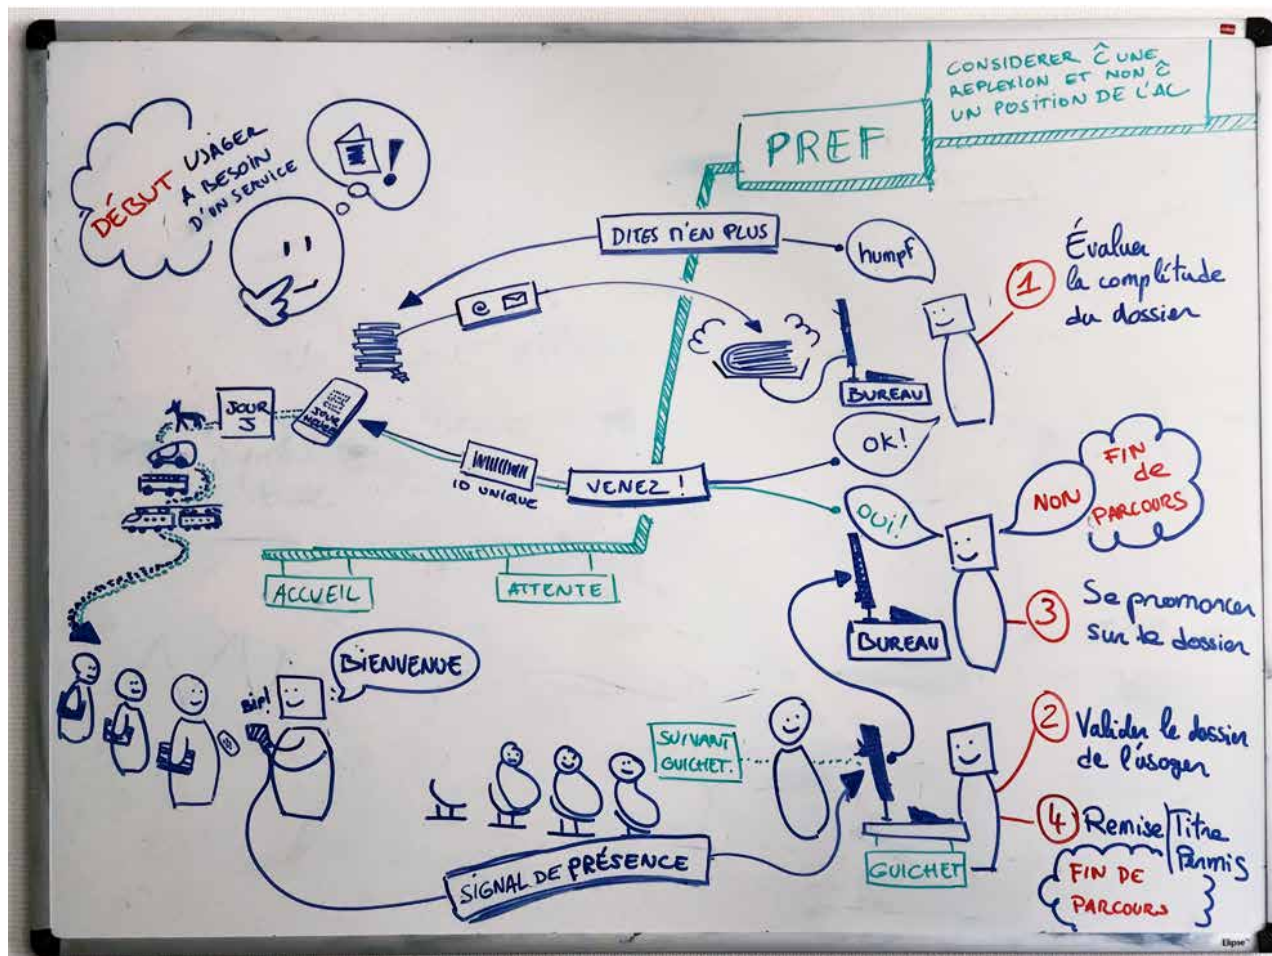 CONSIDERER C̑ UNE
REPLEXION ET NON C̑
UN POSITION DE L'AC
PREF
DÉBUT USAGER
A BESOIN
D'UN SERVICE
!
DITES M'EN PLUS
humpf
1
Évaluer
la complétude
du dossier
@
BUREAU
JOUR
J
JOUR
OK!
ID UNIQUE
VENEZ !
OUI!
NON
FIN
de
PARCOURS
ACCUEIL
ATTENTE
BUREAU
3
Se prononcer
sur le dossier
BIENVENUE
BIP!
SUIVANT
GUICHET.
2
Valider le dossier
de l'usager
4
Remise/Titre
Permis
GUICHET
FIN DE
PARCOURS
SIGNAL DE PRÉSENCE
Elipse